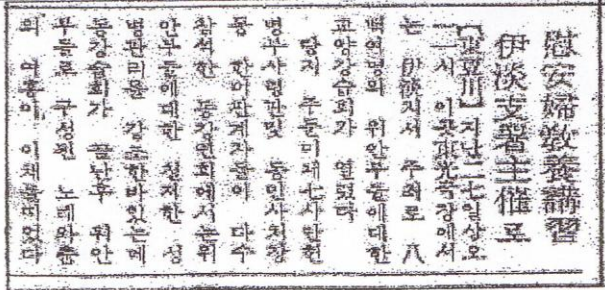 慰安婦敎養講習
伊淡支署主催로
【東豆川】지난二七일상오
一一시 이곳東光극장에서
는 伊淡지서 주최로 八
백여명의 위안부들에대한
교양강습회가 열렸다
당지 주둔미제七사단헌
병부사령관및 동민사처장
동 한미관계자들이 다수
참석한 동강연회에서는위
안부들에대한 철저한 성
병관리를 강조한바있는데
동강습회가 끝난후 위안
부들로 구성된 노래와춤
의 여흥이 이채를띠었다